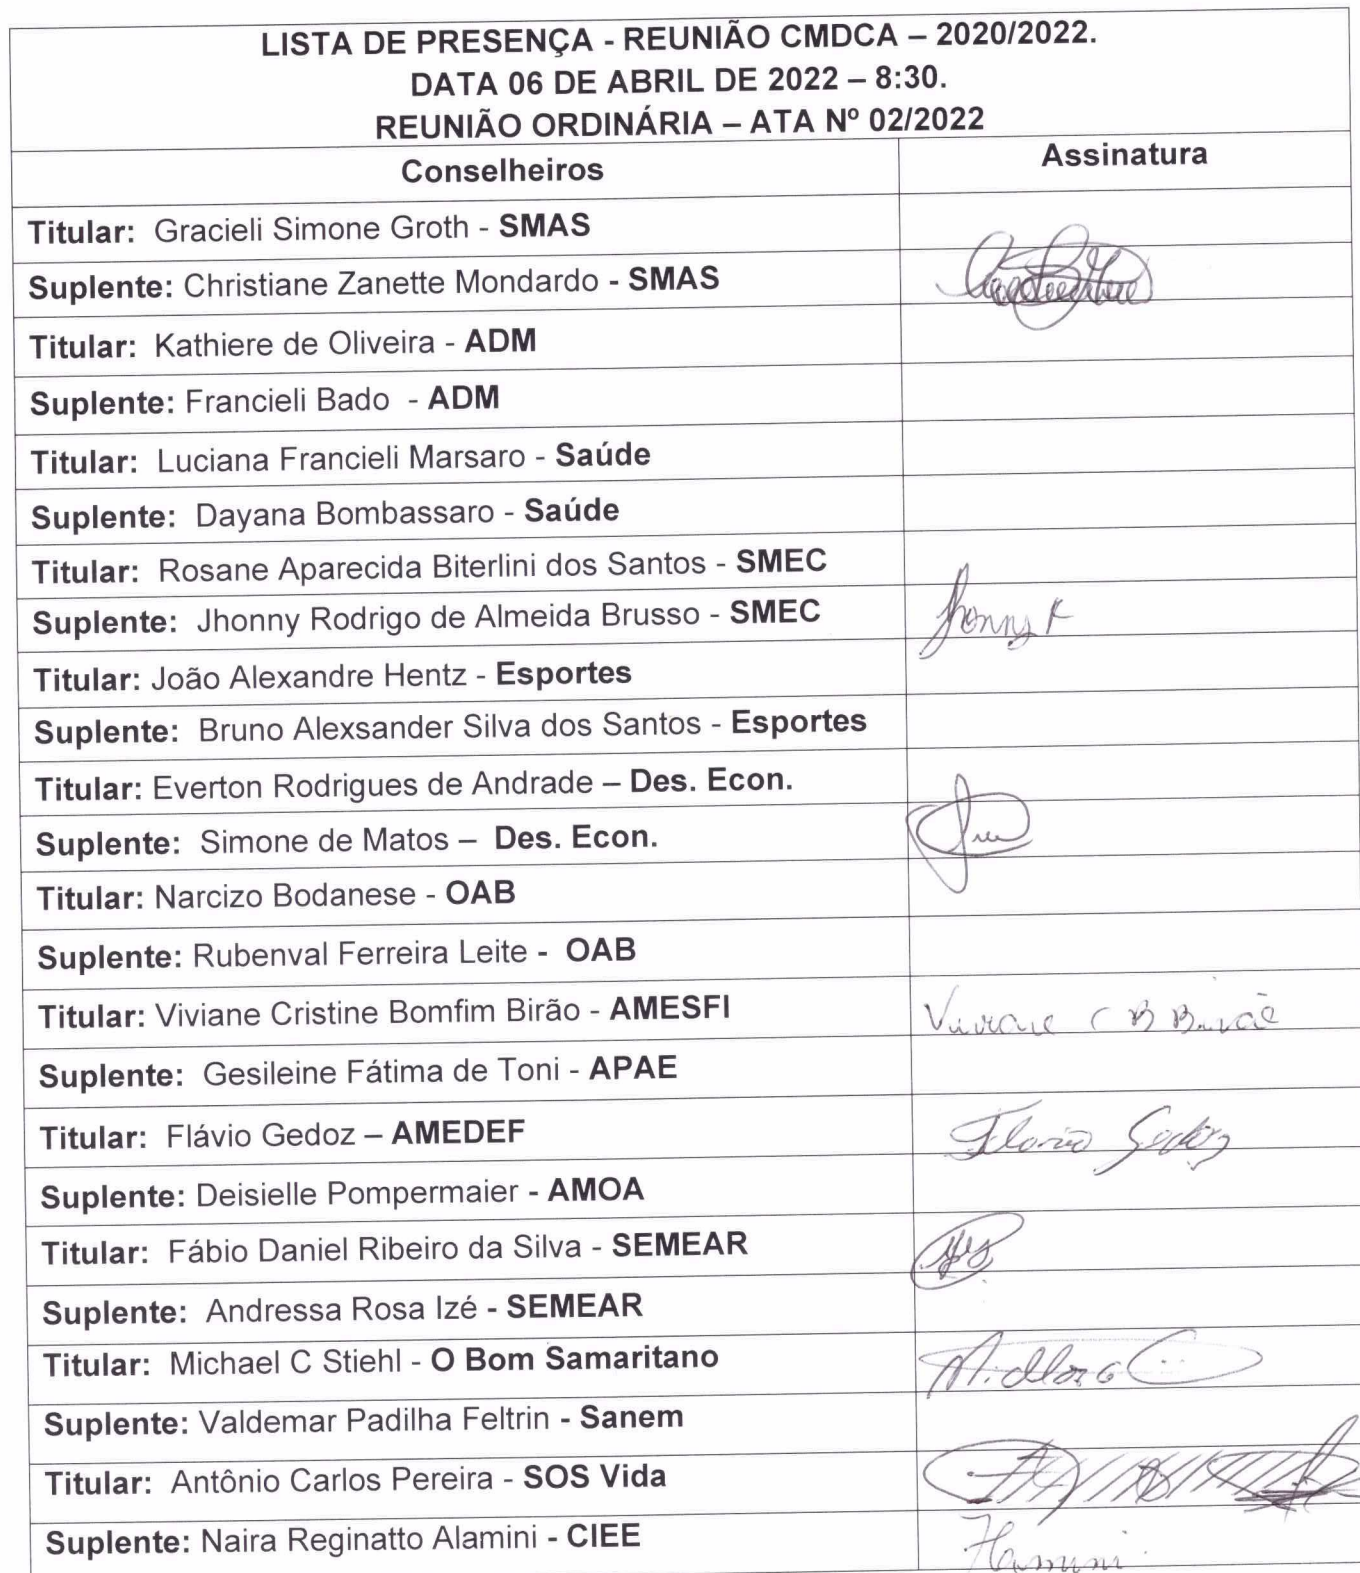 LISTA DE PRESENÇA - REUNIÃO CMDCA – 2020/2022.
DATA 06 DE ABRIL DE 2022 – 8:30.
REUNIÃO ORDINÁRIA – ATA Nº 02/2022
Conselheiros Assinatura
Titular: Gracieli Simone Groth - SMAS
Suplente: Christiane Zanette Mondardo - SMAS
Titular: Kathiere de Oliveira - ADM
Suplente: Francieli Bado - ADM
Titular: Luciana Francieli Marsaro - Saúde
Suplente: Dayana Bombassaro - Saúde
Titular: Rosane Aparecida Biterlini dos Santos - SMEC
Suplente: Jhonny Rodrigo de Almeida Brusso - SMEC Jhonny
Titular: João Alexandre Hentz - Esportes
Suplente: Bruno Alexsander Silva dos Santos - Esportes
Titular: Everton Rodrigues de Andrade – Des. Econ.
Suplente: Simone de Matos – Des. Econ.
Titular: Narcizo Bodanese - OAB
Suplente: Rubenval Ferreira Leite - OAB
Titular: Viviane Cristine Bomfim Birão - AMESFI Viviane C B Birão
Suplente: Gesileine Fátima de Toni - APAE
Titular: Flávio Gedoz – AMEDEF Flavio Gedoz
Suplente: Deisielle Pompermaier - AMOA
Titular: Fábio Daniel Ribeiro da Silva - SEMEAR
Suplente: Andressa Rosa Izé - SEMEAR
Titular: Michael C Stiehl - O Bom Samaritano
Suplente: Valdemar Padilha Feltrin - Sanem
Titular: Antônio Carlos Pereira - SOS Vida
Suplente: Naira Reginatto Alamini - CIEE